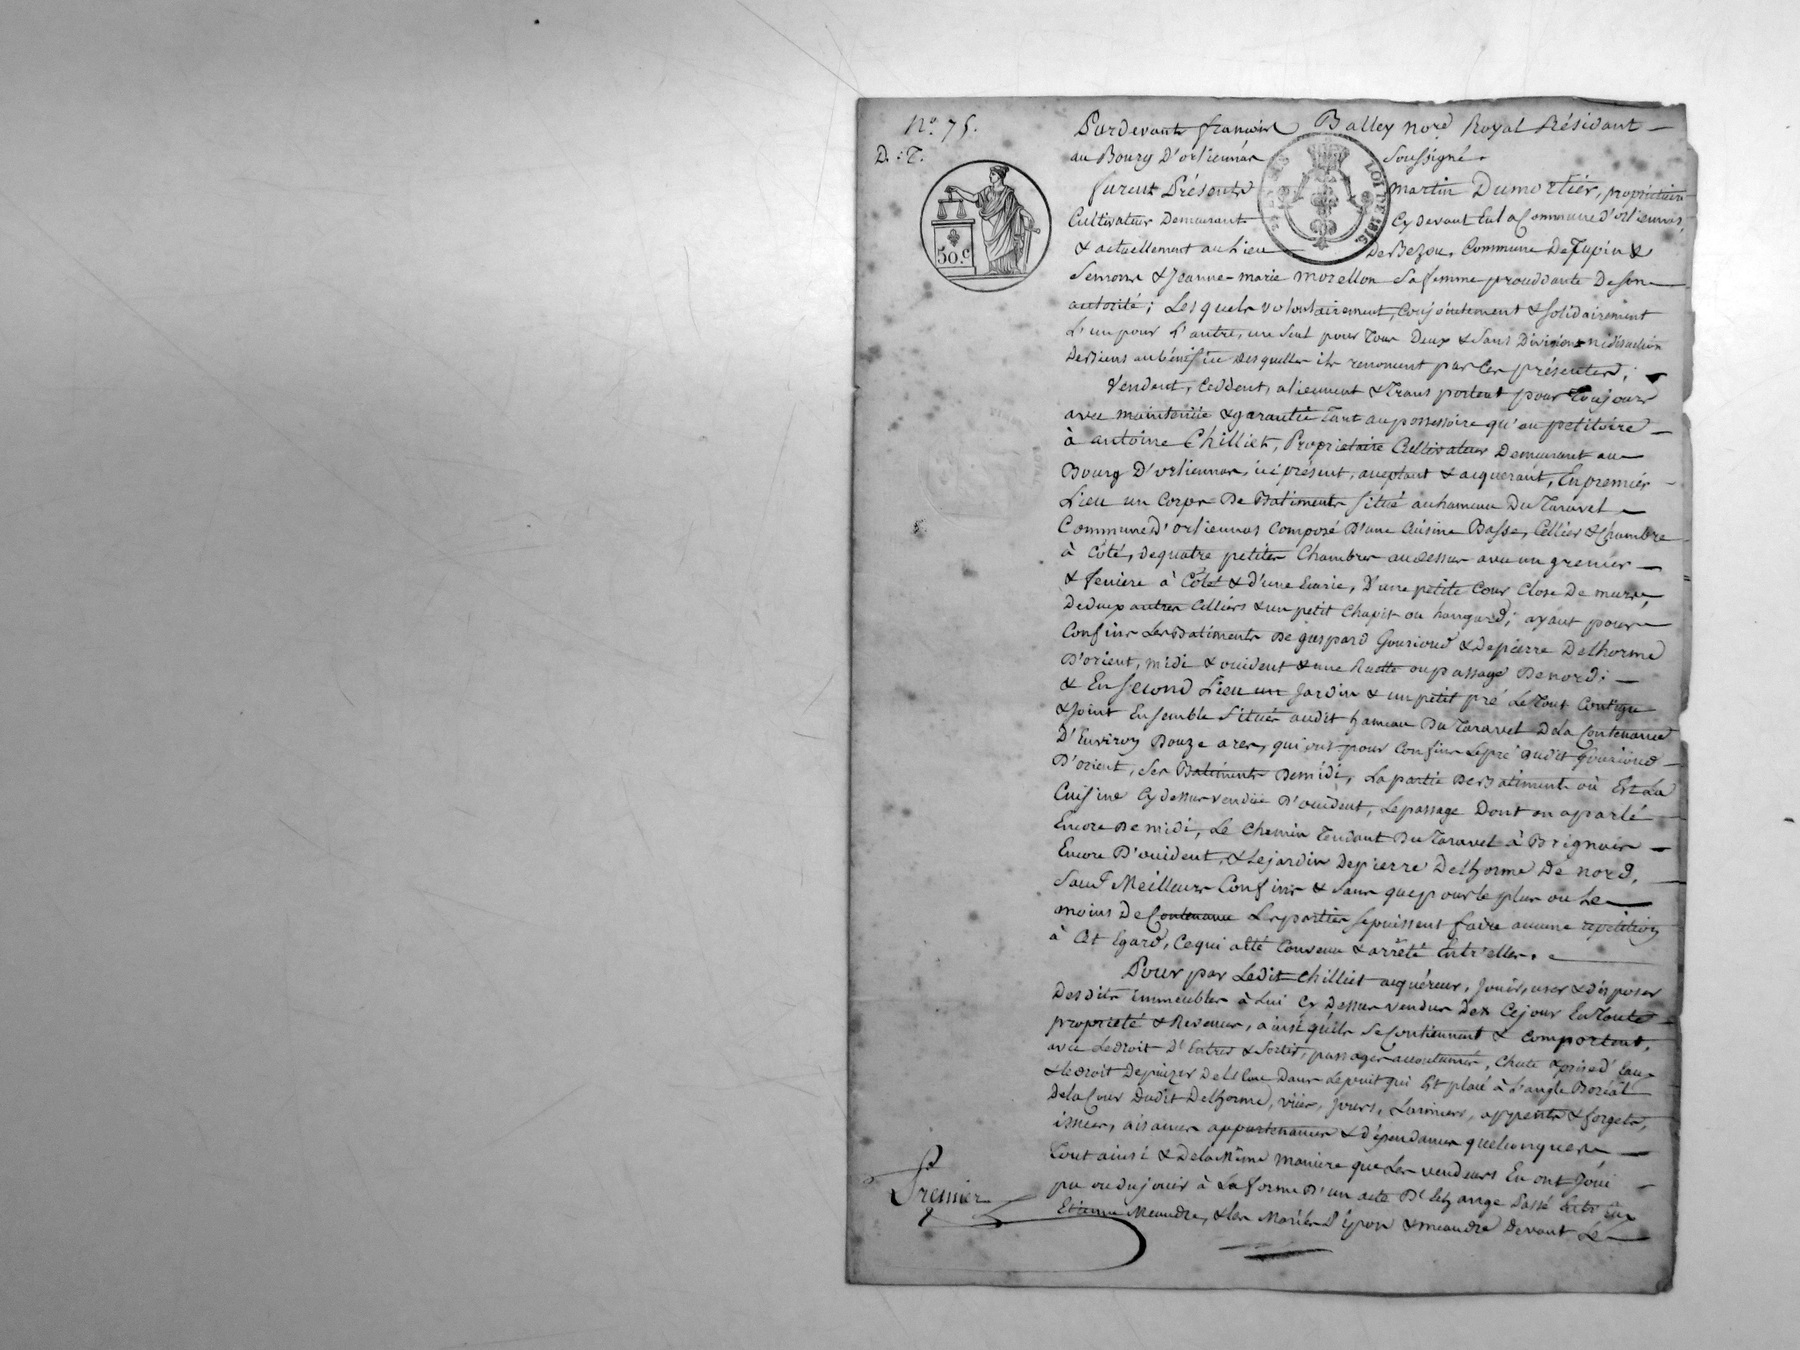 N.º 75.
D. : T.
50.c
LOI DE 1816.
Pardevant françois Balley no.re Royal Résidant
au Bourg D'orliennas soussigné.
furent Présents martin Dumortier, propriétaire
Cultivateur Demeurant Cy devant En la Commune d'orliennas,
& actuellement au Lieu De Bezou, Commune De Tupin &
Semons & Jeanne-marie morellon Sa femme procédante De son
autorité; Lesquels volontairement, Conjointement & solidairement
L'un pour L'autre, un seul pour Tous Deux & sans Division ni discution
De biens au bénéfice Desquelles ils renoncent par Ces présentes;
Vendent, Cedent, aliennent & Transportent pour Toujours
avec maintenüe & garantie Tant au possessoire qu'au petitoire
à antoine Chilliet, Propriétaire Cultivateur Demeurant au
Bourg D'orliennas, ici présent, acceptant & acquerant, En premier
Lieu un Corps De Batiments situé au hameau Du Taravel
Commune D'orliennas Composé D'une Cuisine Basse, Cellier & Chambre
à Côté, de quatre petites Chambres au dessus avec un grenier
& feniere à Côté & d'une Ecurie, D'une petite Cour Close De murs,
De deux autres Celliers & un petit Chapit ou hangard; ayant pour
Confins Les Batiments De gaspard Gourioud & de pierre Delhorme
D'orient, midi & occident & une Ruette ou passage De nord;
& En second Lieu un Jardin & un petit pré Le Tout Contigu
& Joint Ensemble Situés audit hameau Du Taravel De La Contenance
D'Environ Douze ares, qui ont pour Confins Le pré dudit Gourioud
D'orient, Ses Batiments De midi, La partie De Batiments où Est La
Cuisine Cy dessus vendüe D'occident, Le passage Dont on a parlé
Encore De midi, Le Chemin Tendant Du Taravel à Brignais
Encore D'occident, & Le jardin De pierre Delhorme De nord,
Sauf Meilleurs Confins & sans que pour le plus ou Le
moins De Contenance Les parties se puissent faire aucune repétition
à Cet Egard, Ce qui a été Convenu & arrêté Entr'elles.
Pour par Ledit Chilliet acquéreur, Jouir, user & disposer
Desdits immeubles à Lui Cy Dessus vendus Dès Ce jour En Toute
propriété & Revenus, ainsi qu'ils Se Contiennent & Comportent,
avec Le Droit D'Entrés & Sortis, passages accoutumés, Chute & prise d'Eau
& le droit De puizer De L'Eau Dans Le puit qui Est placé à L'angle Boréal
De la Cour Dudit Delhorme, vües, jours, Larmiers, appents & forgets,
issues, aisances appartenances & dépendances quelconques
Tout ainsi & De la Même maniere que Les vendeurs En ont Joüi
pu ou du jouir à La forme D'un acte D'Echange Passé Entr'Eux
Etienne Meandre, & Les Mariés Péyron & meandre Devant Le
Premier